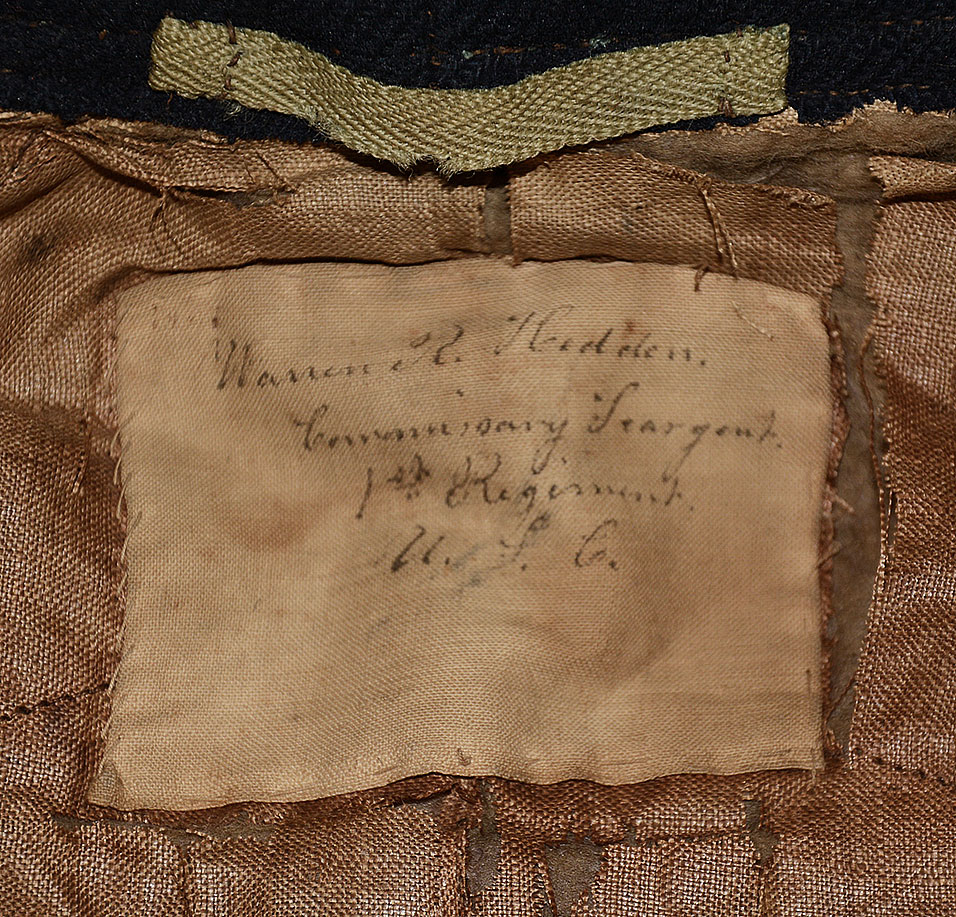 Warren R. Hedden.
Commissary Seargent.
1st Regiment.
U. S. C.